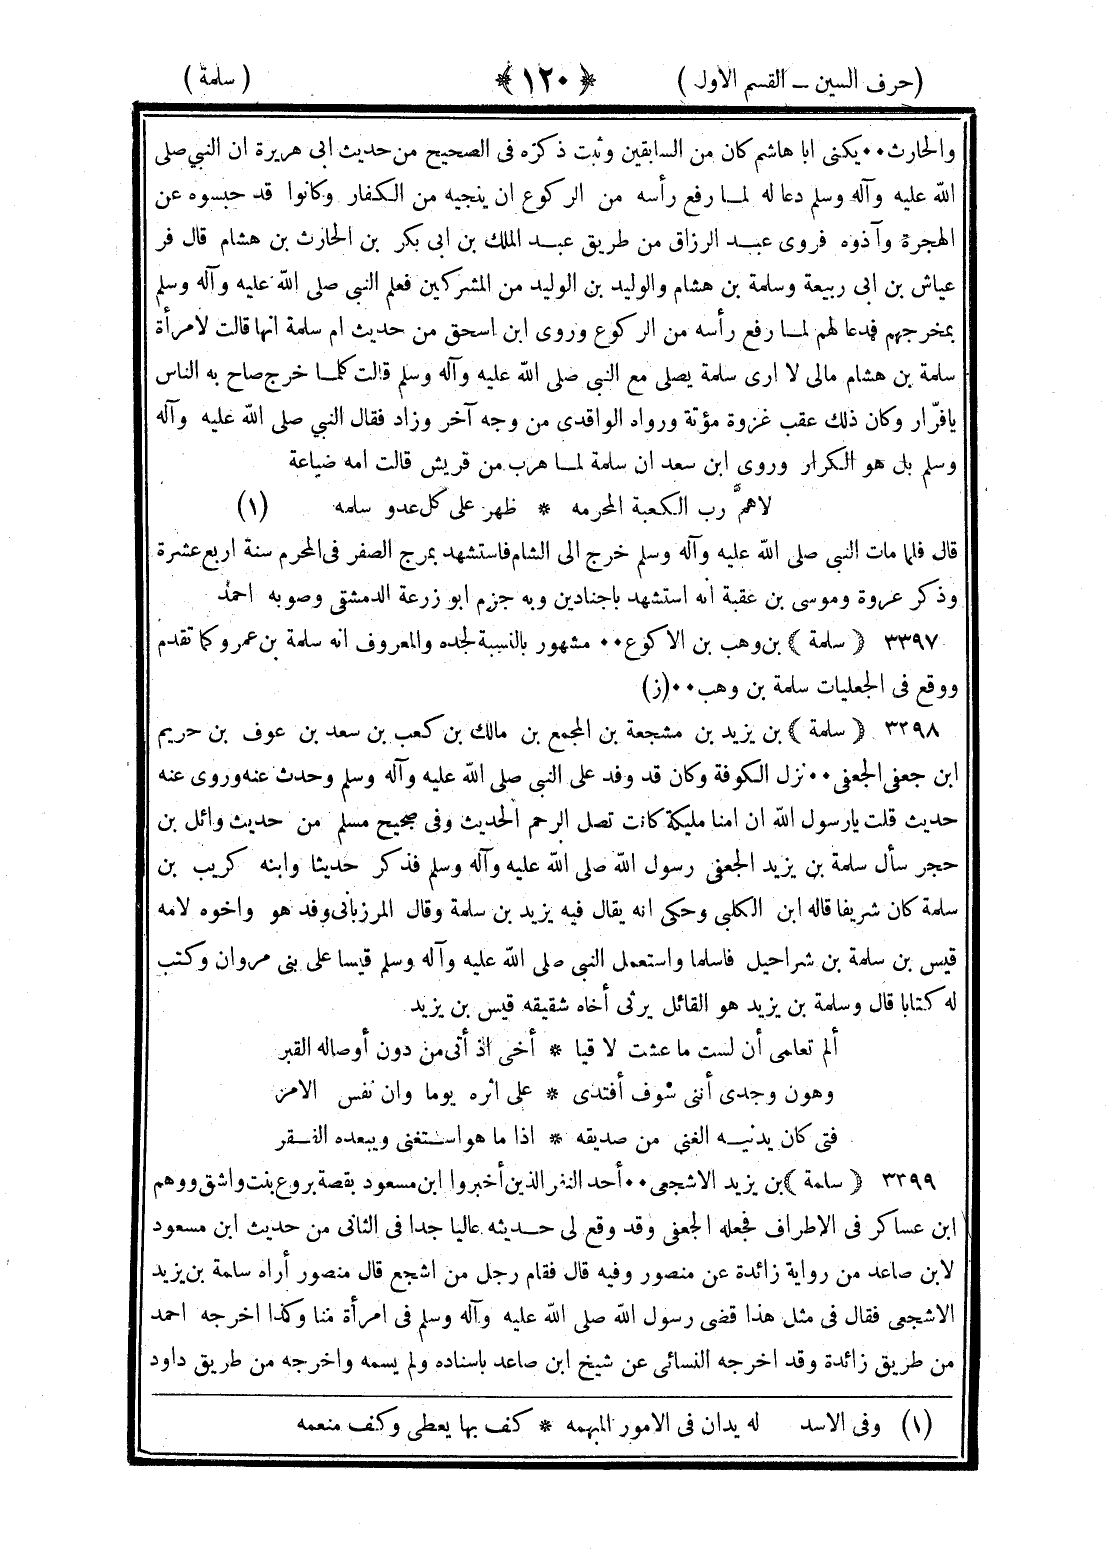 (حرف السين – القسم الاول) ﴿١٢٠﴾ (سلمة)
والحارث٠٠يكنى ابا هاشم كان من السابقين وثبت ذكره فى الصحيح من حديث ابى هريرة ان النبي صلى
الله عليه وآله وسلم دعا له لما رفع رأسه من الركوع ان ينجيه من الكفار وكانوا قد حبسوه عن
الهجرة وآذوه فروى عبد الرزاق من طريق عبد الملك بن ابى بكر بن الحارث بن هشام قال فر
عياش بن ابى ربيعة وسلمة بن هشام والوليد بن الوليد من المشركين فعلم النبي صلى الله عليه وآله وسلم
بمخرجهم فدعا لهم لما رفع رأسه من الركوع وروى ابن اسحق من حديث ام سلمة انها قالت لامرأة
سلمة بن هشام مالى لا ارى سلمة يصلى مع النبي صلى الله عليه وآله وسلم قالت كلما خرج صاح به الناس
يافرّار وكان ذلك عقب غزوة مؤتة ورواه الواقدى من وجه آخر وزاد فقال النبي صلى الله عليه وآله
وسلم بل هو الكرار وروى ابن سعد ان سلمة لما هرب من قريش قالت امه ضباعة
لاهمَّ رب الكعبة المحرمه * ظهر على كل عدو سلمه (١)
قال فلما مات النبي صلى الله عليه وآله وسلم خرج الى الشام فاستشهد بمرج الصفر فى المحرم سنة اربع عشرة
وذكر عروة وموسى بن عقبة أنه استشهد باجنادين وبه جزم ابو زرعة الدمشقى وصوبه احمد
٣٣٩٧ ﴿سلمة﴾ بن وهب بن الاكوع٠٠ مشهور بالنسبة لجده والمعروف انه سلمة بن عمرو كما تقدم
ووقع فى الجعليات سلمة بن وهب٠٠(ز)
٣٣٩٨ ﴿سلمة﴾ بن يزيد بن مشجعة بن المجمع بن مالك بن كعب بن سعد بن عوف بن حريم
ابن جعفى الجعفى٠٠نزل الكوفة وكان قد وفد على النبي صلى الله عليه وآله وسلم وحدث عنه وروى عنه
حديث قلت يارسول الله ان امنا مليكة كانت تصل الرحم الحديث وفى صحيح مسلم من حديث وائل بن
حجر سأل سلمة بن يزيد الجعفى رسول الله صلى الله عليه وآله وسلم فذكر حديثا وابنه كريب بن
سلمة كان شريفا قاله ابن الكلبى وحكى انه يقال فيه يزيد بن سلمة وقال المرزبانى وفد هو واخوه لامه
قيس بن سلمة بن شراحيل فاسلما واستعمل النبي صلى الله عليه وآله وسلم قيسا على بنى مروان وكتب
له كتابا قال وسلمة بن يزيد هو القائل يرثى أخاه شقيقه قيس بن يزيد
ألم تعلمى أن لست ما عشت لا قيا * أخى اذ أتى من دون أوصاله القبر
وهون وجدى أننى سوف أفتدى * على اثره يوما وان نفس الامر
فتى كان يدنيه الغنى من صديقه * اذا ما هو استغنى ويبعده الفقر
٣٣٩٩ ﴿سلمة﴾ بن يزيد الاشجعى٠٠أحد النفر الذين أخبروا ابن مسعود بقصة بروع بنت واشق ووهم
ابن عساكر فى الاطراف فجعله الجعفى وقد وقع لى حديثه عاليا جدا فى الثانى من حديث ابن مسعود
لابن صاعد من رواية زائدة عن منصور وفيه قال فقام رجل من اشجع قال منصور أراه سلمة بن يزيد
الاشجعى فقال فى مثل هذا قضى رسول الله صلى الله عليه وآله وسلم فى امرأة منا وكذا اخرجه احمد
من طريق زائدة وقد اخرجه النسائى عن شيخ ابن صاعد باسناده ولم يسمه واخرجه من طريق داود
(١) وفى الاسد له يدان فى الامور المبهمه * كف بها يعطى وكف منعمه